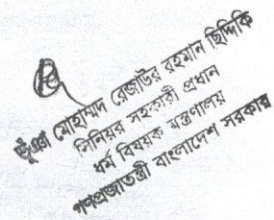 মোহাম্মদ রেজাউর রহমান ছিদ্দিকি
সিনিয়র সহকারী প্রধান
ধর্ম বিষয়ক মন্ত্রণালয়
গণপ্রজাতন্ত্রী বাংলাদেশ সরকার